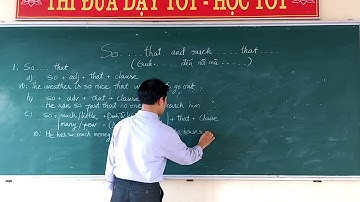 THI ĐUA DẠY TỐT - HỌC TỐT
So .... that and such .... that ....
(quá ..... đến nỗi mà ......)
1, So .... that
a) so + adj + that + clause
The weather is so nice that go out
b) so + adv + that + clause
He ran so fast that no one catch him
c) so + much/little + that + clause
/many/few
He has so much money house